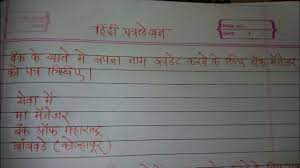 हिंदी पत्रलेखन
PAGE NO.
DATE
बैंक के खाते मे अपना नाम अपडेट करने के लिए बैंक मॅनेजर
को पत्र लिखिए।
सेवा में
मा मॅनेजर
बैंक ऑफ महाराष्ट्र
बांबवडे (कोल्हापूर)